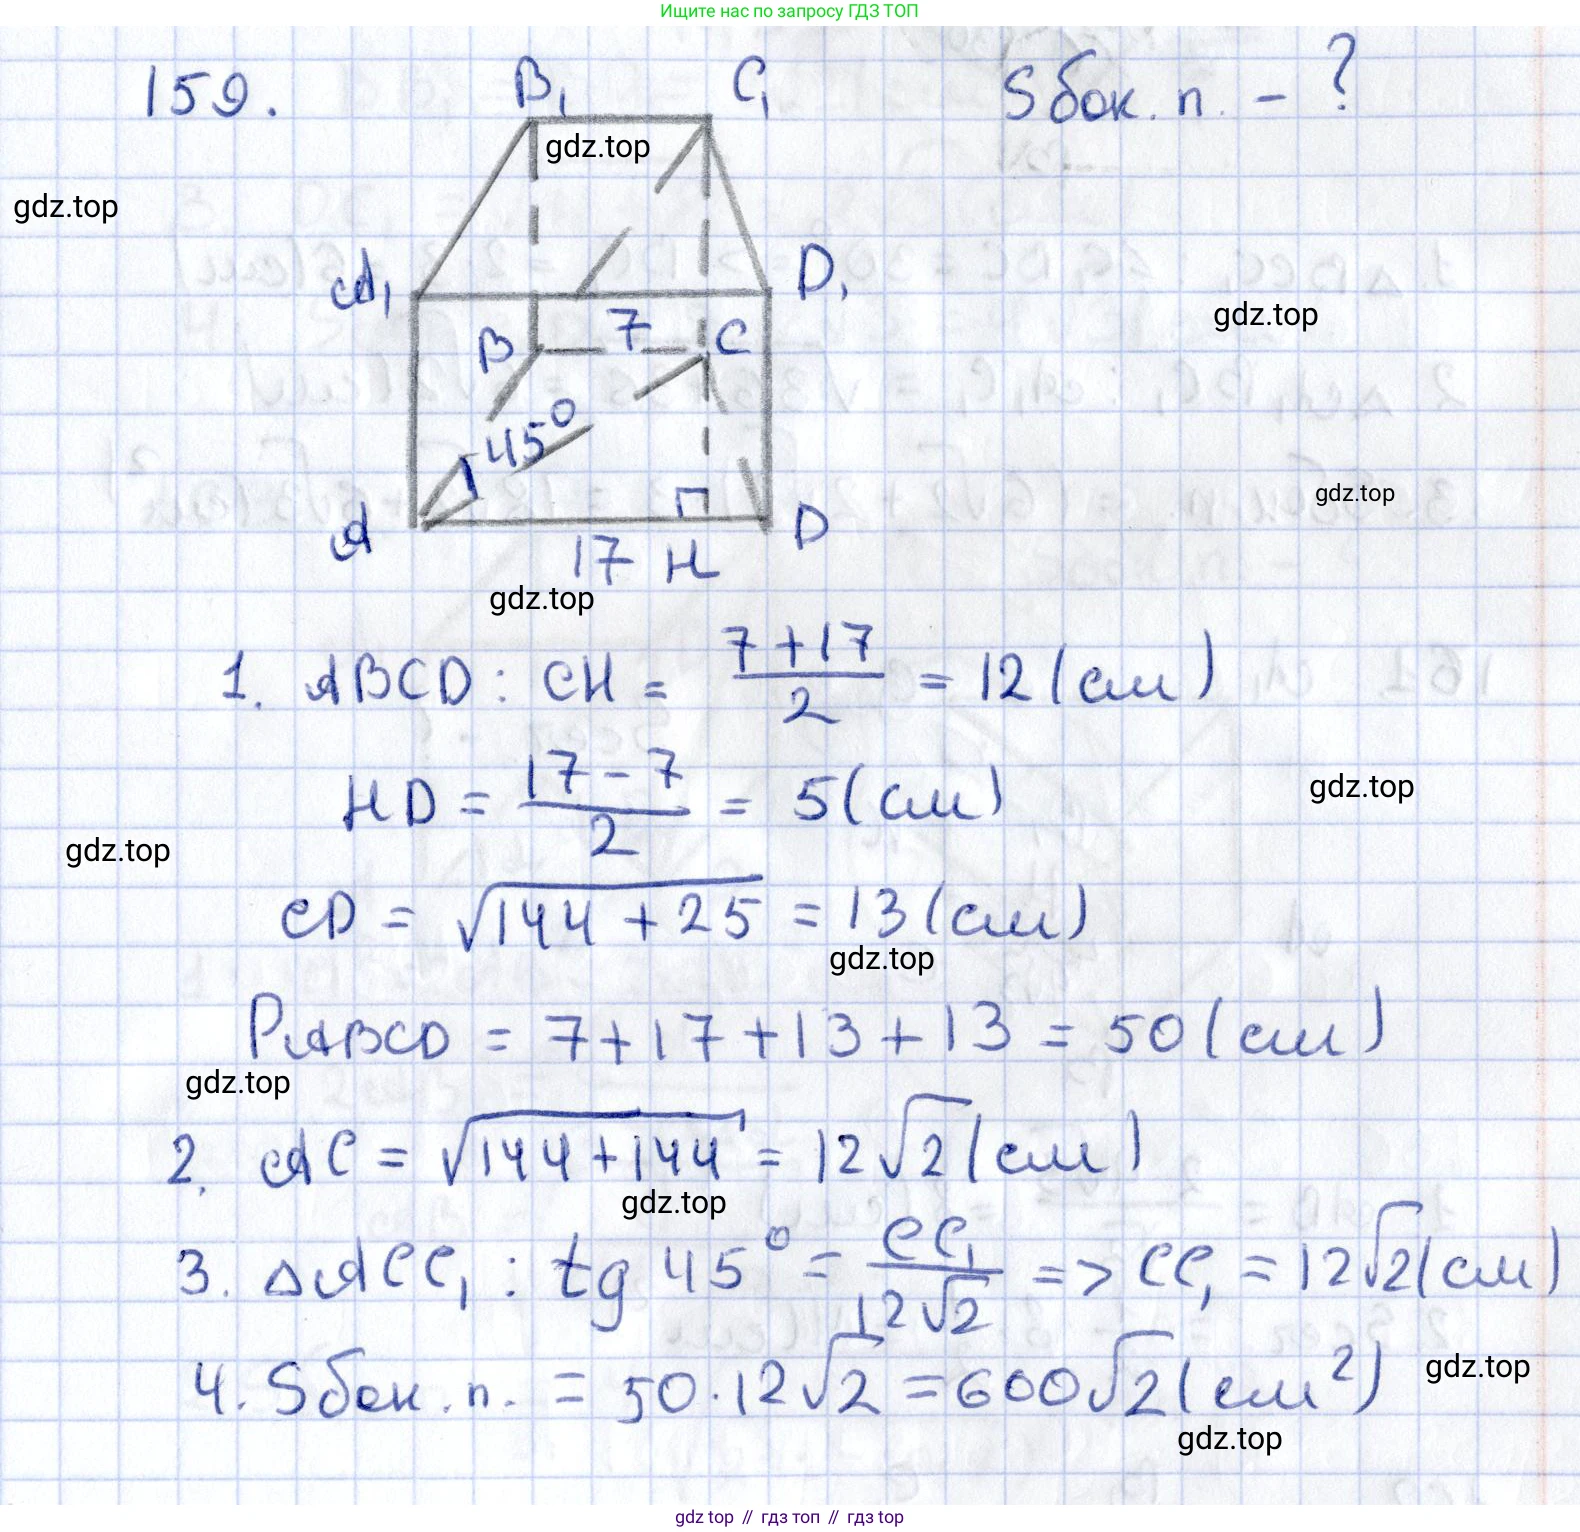 Ищите нас по запросу ГДЗ ТОП
159.
B₁ C₁
Sбок. п. - ?
gdz.top
gdz.top
A₁ D₁
gdz.top
B 7 C
45°
gdz.top
A D
17 H
gdz.top
1. ABCD : CH = (7 + 17)/2 = 12 (см)
HD = (17 - 7)/2 = 5 (см)
gdz.top
gdz.top
CD = √(144 + 25) = 13 (см)
gdz.top
P ABCD = 7 + 17 + 13 + 13 = 50 (см)
gdz.top
2. AC = √(144 + 144) = 12√2 (см)
gdz.top
3. △ACC₁ : tg 45° = CC₁/12√2 => CC₁ = 12√2 (см)
4. Sбок. п. = 50 · 12√2 = 600√2 (см²)
gdz.top
gdz.top
gdz.top // гдз топ // гдз top